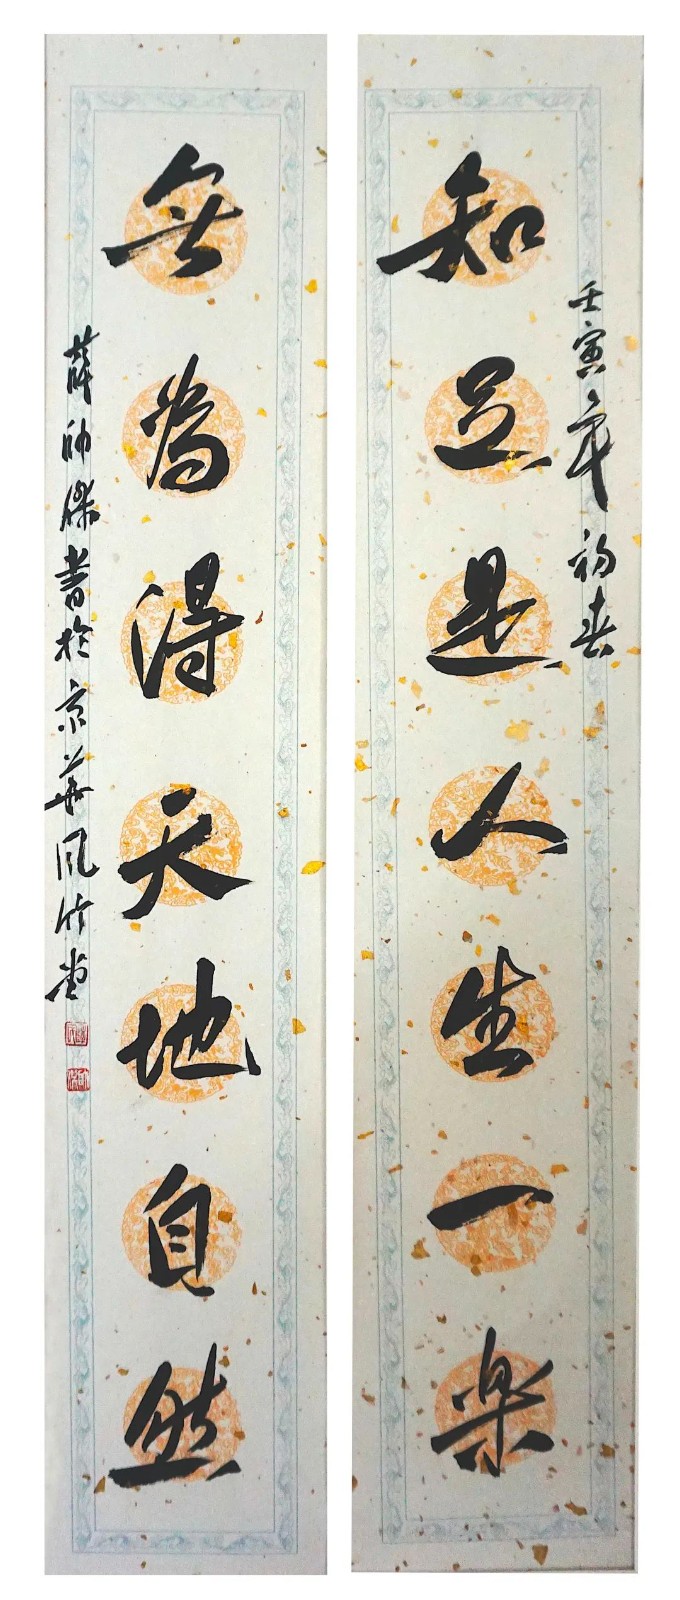 壬寅年初春
知足是人生一樂
無為得天地自然
薛帅傑書於京華風竹堂